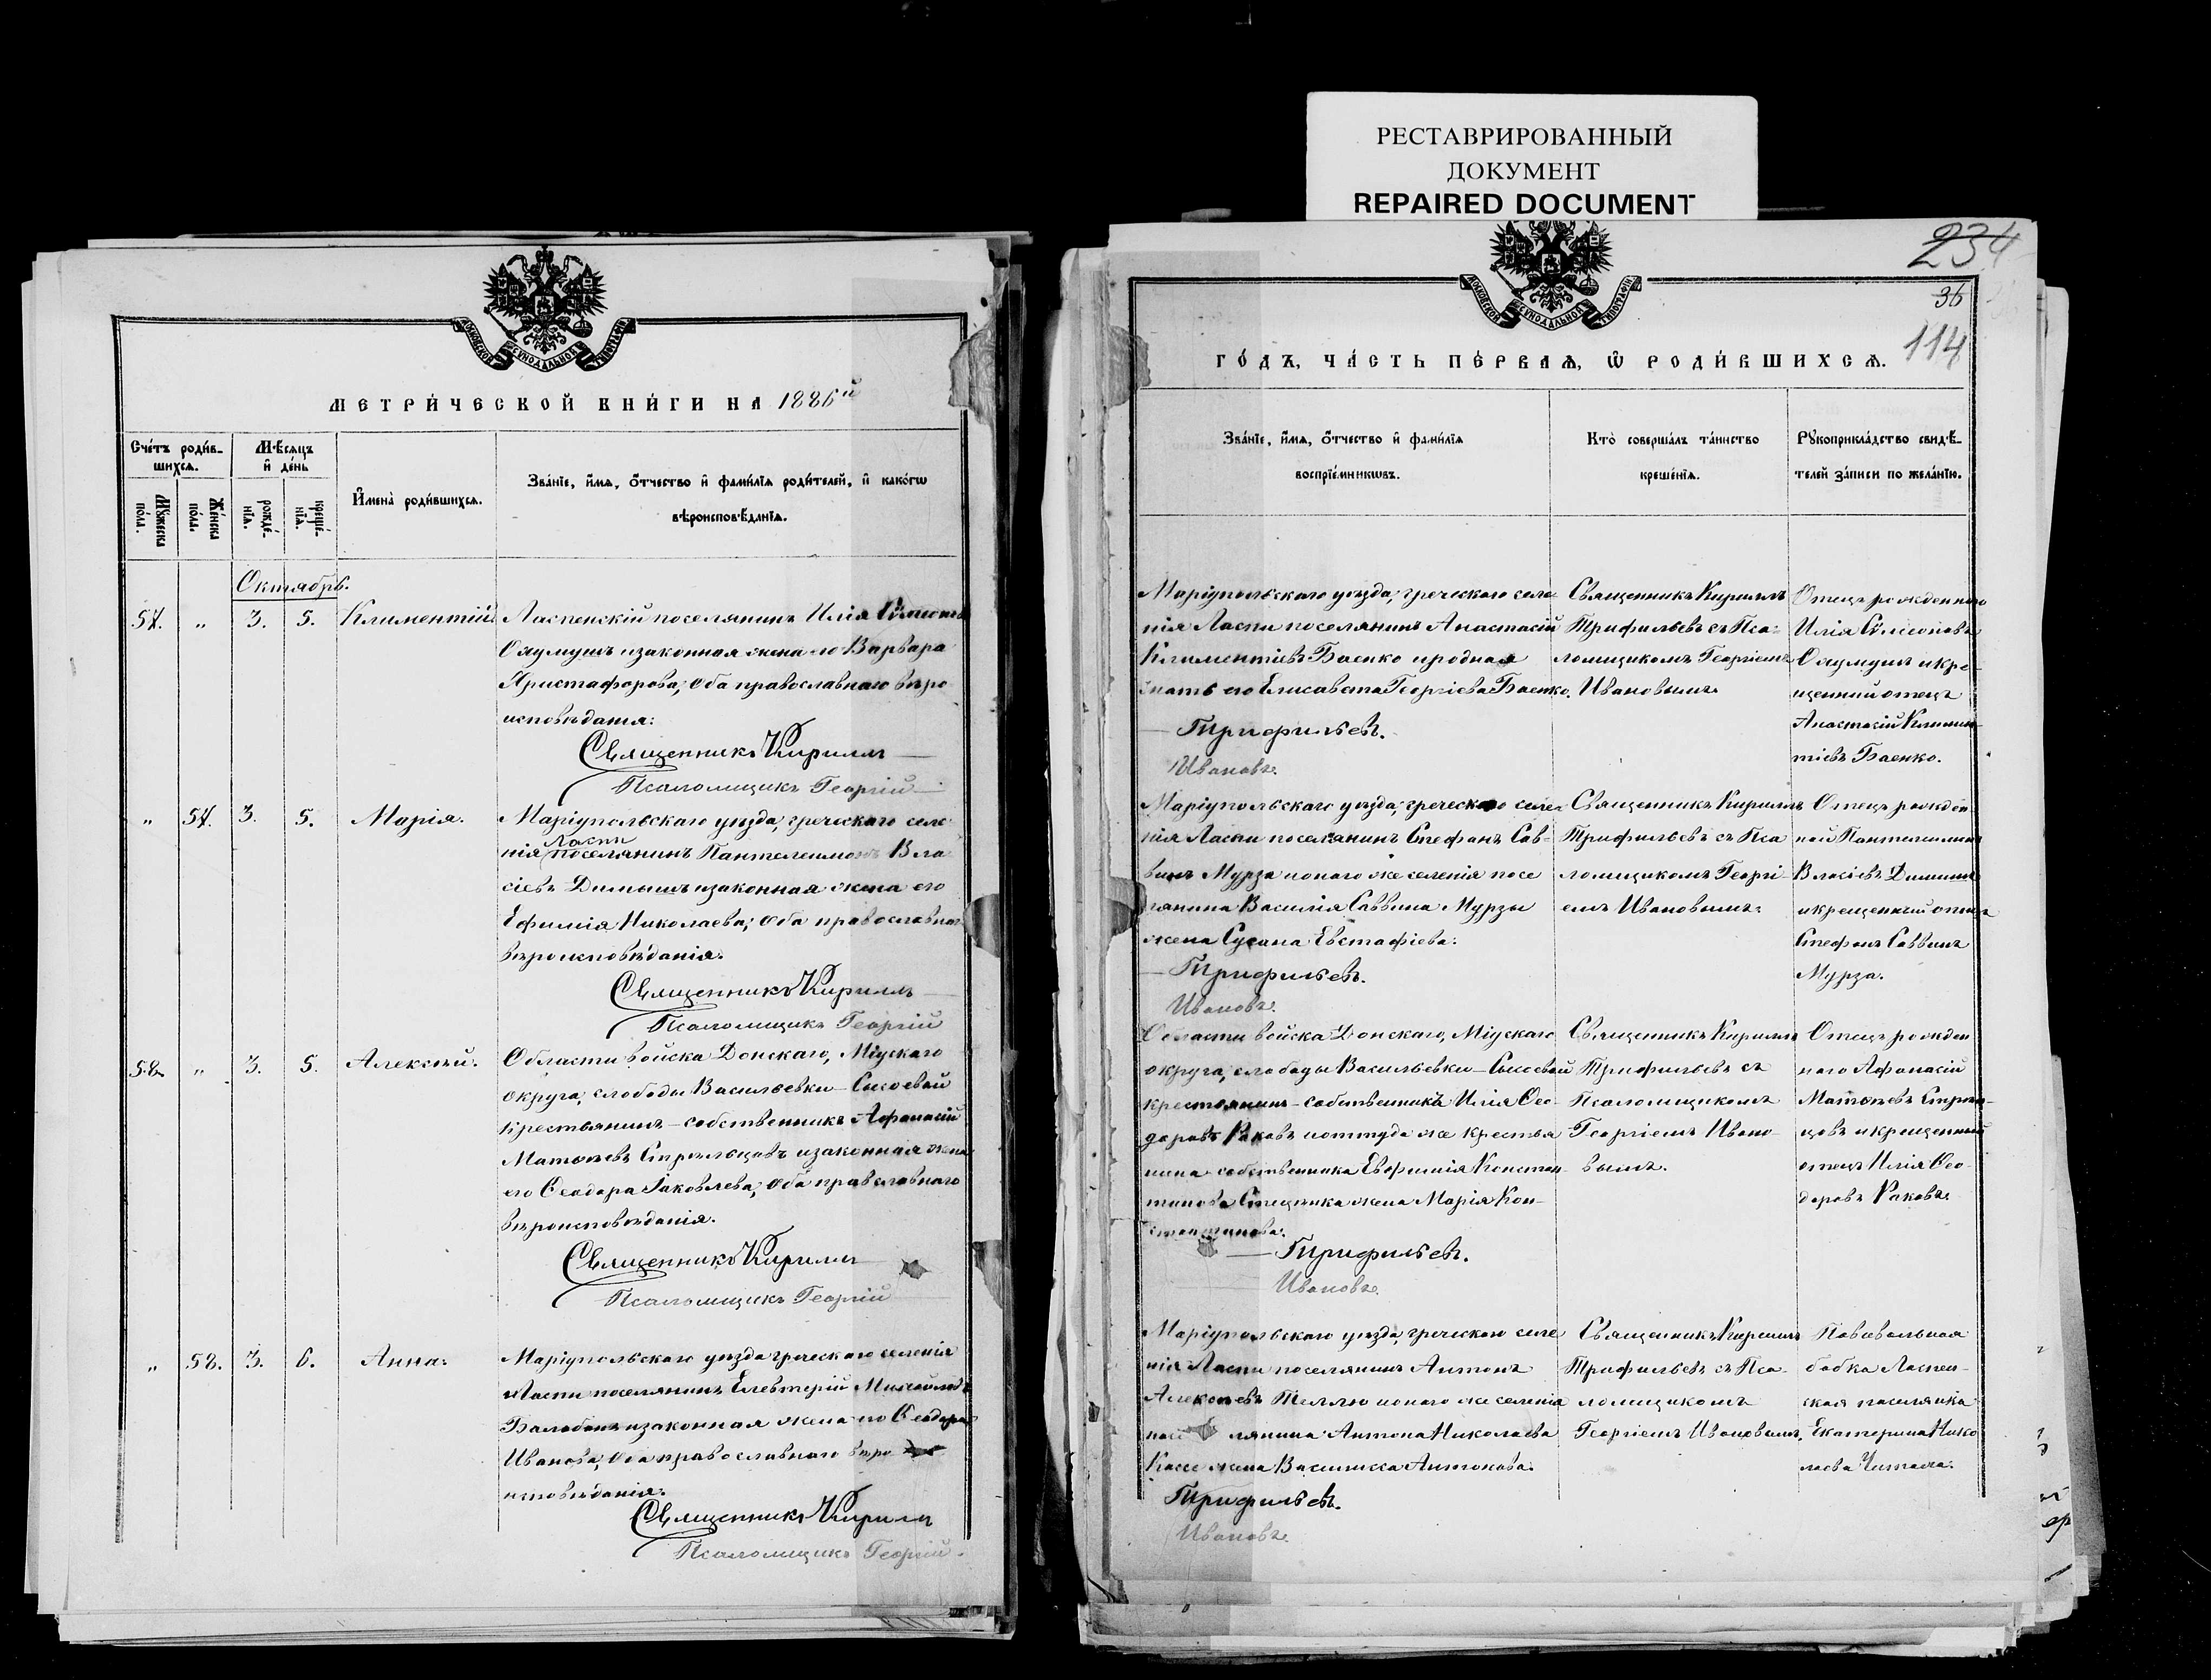 РЕСТАВРИРОВАННЫЙ
ДОКУМЕНТ
REPAIRED DOCUMENT
МОСКОВСКОЙ СѴНОДАЛЬНОЙ ТИПОГРАФІИ
МЕТРИ́ЧЕСКОЙ КНИ́ГИ НА 1886й
Сче́тъ роди́в-
шихсѧ.
Мѣ́сѧцъ
и҆ де́нь
Мꙋ́жеска
по́ла.
Же́нска
по́ла.
рожде́-
нїѧ.
креще́-
нїѧ.
И҆мена̀ роди́вшихсѧ.
Зва́нїе, и҆́мѧ, ѻ҆́тчество и҆ фами́лїѧ роди́телей, и҆ како́гѡ
вѣроисповѣ́данїѧ.
Октябрь.
57. " 3. 5. Климентій Ласпенскій поселянинъ Илія Сѵмеоновъ
Охумушъ изаконная жена его Варвара
Христафорова; оба православнаго вѣро
исповѣданія:
Священникъ Кириллъ
Псаломщикъ Георгій
" 57. 3. 5. Марія. Маріупольскаго уѣзда, греческаго селе
Ласпи
нія поселянинъ Пантелеимонъ Вла
сіевъ Димышъ изаконная жена его
Ефимія Николаева; оба православнаго
вѣроисповѣданія.
Священникъ Кириллъ
Псаломщикъ Георгій
58. " 3. 5. Алексѣй. Области войска Донскаго, Міускаго
округа, слободы Васильевки-Сысоевой
крестьянинъ-собственникъ Афанасій
Матвѣевъ Стрѣльцовъ изаконная жена
его Ѳеодора Іаковлева; оба православнаго
вѣроисповѣданія.
Священникъ Кириллъ
Псаломщикъ Георгій
" 58. 3. 6. Анна. Маріупольскаго уѣзда греческаго селенія
Ласпи поселянинъ Елевтерій Михайловъ
Балабанъ изаконная жена его Ѳеодора
Иванова, оба православнаго вѣро
исповѣданія.
Священникъ Кириллъ
Псаломщикъ Георгій.
234
36
114
МОСКОВСКОЙ СѴНОДАЛЬНОЙ ТИПОГРАФІИ
ГО́ДЪ, ЧА́СТЬ ПЕ́РВАѦ, Ѡ҆ РОДИ́ВШИХСѦ.
Зва́нїе, и҆́мѧ, ѻ҆́тчество и҆ фами́лїѧ
воспрїе́мникѡвъ.
Кто̀ соверша́лъ та́инство
креще́нїѧ.
Рꙋкоприкла́дство свидѣ́-
телей за́писи по жела́нїю.
Маріупольскаго уѣзда, греческаго селе
нія Ласпи поселянинъ Анастасій
Климентіевъ Баенко иродная
мать его Елисавета Георгіева Баенко.
Трифильевъ.
Ивановъ.
Священникъ Кириллъ
Трифильевъ съ Пса-
ломщикомъ Георгіемъ
Ивановымъ.
Отецъ рожденнаго
Илія Сѵмеоновъ
Охумушъ икре-
щенный отецъ
Анастасій Климен-
тіевъ Баенко.
Маріупольскаго уѣзда, греческаго селе
нія Ласпи поселянинъ Стефанъ Сав-
винъ Мурза ионаго же селенія посе
лянина Василія Саввина Мурзы
жена Сусана Евстафіева:
Трифильевъ.
Ивановъ.
Священникъ Кириллъ
Трифильевъ съ Пса
ломщикомъ Георгі-
емъ Ивановымъ.
Отецъ рожден
ной Пантелеимонъ
Власіевъ Димышъ
икрещенный отецъ
Стефанъ Саввинъ
Мурза.
Области войска Донскаго, Міускаго
округа, слободы Васильевки-Сысоевой
крестьянинъ-собственникъ Илія Ѳео-
доровъ Раковъ иоттуда же крестья
нина-собственника Евфимія Констан-
тинова жена Марія Кон-
стантинова.
Трифильевъ.
Ивановъ.
Священникъ Кириллъ
Трифильевъ съ
Псаломщикомъ
Георгіемъ Ивано-
вымъ.
Отецъ рожден
наго Афанасій
Матвѣевъ Стрѣль-
цовъ икрещенный
отецъ Илія Ѳео-
доровъ Раковъ.
Маріупольскаго уѣзда, греческаго селе
нія Ласпи поселянинъ Антонъ
Алексѣевъ Теллю ионаго же селенія
посе лянина Антона Николаева
Кассе жена Василисса Антонова.
Трифильевъ.
Ивановъ.
Священникъ Кириллъ
Трифильевъ съ Пса-
ломщикомъ
Георгіемъ Ивановымъ.
Повивальная
бабка Ласпен-
ская поселянка
Екатерина Нико
лаева